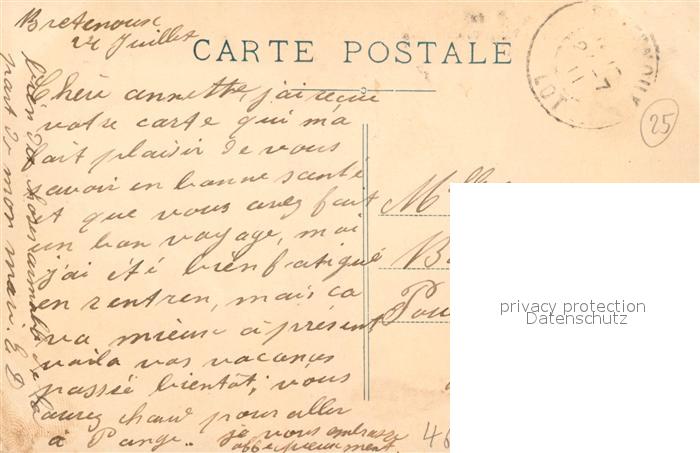 Bretenoux
Juillet
CARTE POSTALE
Chère annette, j'ai reçue
votre carte qui ma
fait plaisir de vous
savoir en bonne santé
et que vous avez fait
un bon voyage, moi
j'ai été bien fatigué
en rentren, mais ca
va mieux à présent
voila vos vacances
passée bientôt, vous
aurez chaud pour aller
à Pange. je vous embrasse
affectueusement.
bien de choses aimable de la
part de mon mari. L D
LOT
25
M
B
Pou
46
privacy protection
Datenschutz